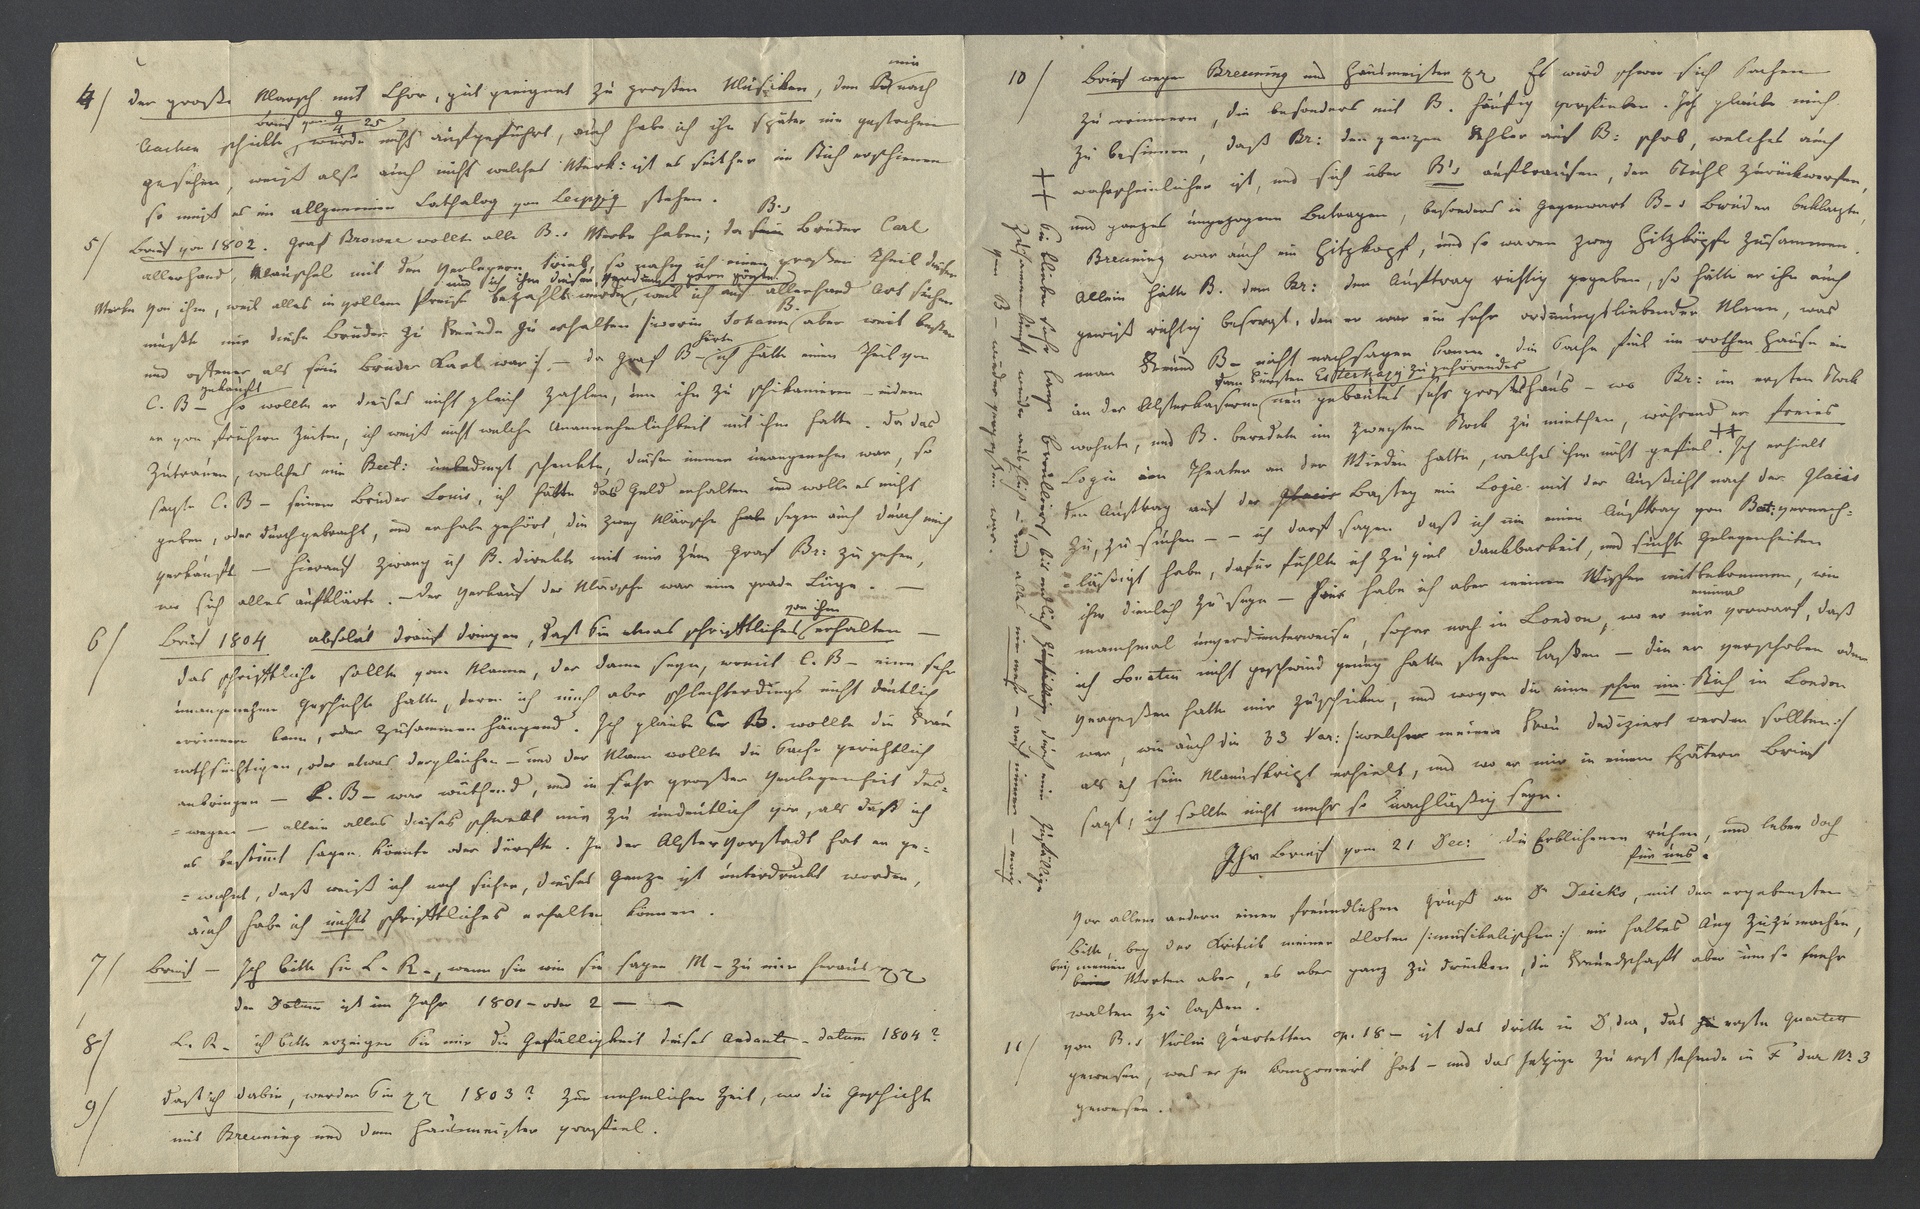 4/ der große Marsch mit Chor, gut geeignet zu großen Musiken, den B. mir nach
Brief vom 9/4 25
Aachen schickte, wurde nicht aufgeführt, auch habe ich ihn später nie gestochen
gesehen, weiß also auch nicht welches Werk: ist es seither im Stich erschienen
so muß es im allgemeinen Cathalog von Leipzig stehen.
5/ Brief von 1802. Graf Browne wollte alle B.s Werke haben; da B.s Bruder Carl
allerhand Mauschel mit den Verlegern trieb, so nahm ich einen großen Theil dieser
und sich ihm diesen Verdienst gern gönnte
Werke von ihm, weil alles in vollem Preise bezahlt wurde, weil ich auf allerhand Art suchen
mußte mir diese Brüder zu Freunde zu erhalten /:worin Johann B. aber weit besser
und offener als sein Bruder Karl war:/ – da Graf B– ich hatte einen Theil von
C. B– gekauft so wollte er dieses nicht gleich zahlen, um ihn zu schikaniren – indem
er von frühern Zeiten, ich weiß nicht welche Unannehmlichkeit mit ihm hatte. Da das
Zutrauen, welches mir Beet: unbedingt schenkte, diesem immer unangenehm war, so
sagte C. B– seinem Bruder Louis, ich hätte das Geld erhalten und wolle es nicht
geben, oder durchgebracht, und er habe gehört, die zwey Märsche seyen auch durch mich
verkauft – hierauf zwang ich B. direkte mit mir zum Graf Br: zu gehen,
wo sich alles aufklärte. – Der Verkauf der Märsche war eine grade Lüge. –
6/ Brief 1804 absolut darauf dringen, daß Sie etwas schriftliches von ihm erhalten –
das schriftliche sollte vom Manne, der Dame seyn, womit C. B– eine sehr
unangenehme Geschichte hatte, deren ich mich aber schlechterdings nicht deutlich
erinnern kann, oder zusammenhängend. Ich glaube C. B. wollte die Frau
nothzüchtigen, oder etwas dergleichen – und der Mann wollte die Sache gerichtlich
anbringen – L. B– war wüthend, und in sehr großer Verlegenheit des-
=wegen – allein alles dieses schwebt mir zu undeutlich vor, als daß ich
es bestimmt sagen könnte oder dürfte. In der Alstervorstadt hat er ge-
=wohnt, daß weiß ich noch sicher, dieses Ganze ist unterdrückt worden,
auch habe ich nichts schriftliches erhalten können.
7/ Brief – Ich bitte sie L. R–, wenn sie wie sie sagen M– zu mir heraus xx
der Datum ist im Jahr 1801 – oder 2 – –
8/ L. R– ich bitte erzeigen Sie mir die Gefälligkeit dieses Andante – datum 1804?
9/ Daß ich dabin, werden Sie xx 1803? Zur nehmlichen Zeit, wo die Geschichte
mit Breuning und dem Hausmeister vorfiel.
10/ Brief wegen Breuning und Hausmeister xx Es wird schwer sich Sachen
zu erinnern, die besonders mit B. häufig vorfielen. Ich glaube mich
zu besinnen, daß Br: den ganzen Fehler auf B: schob, welches auch
wahrscheinlicher ist, und sich über B's aufbrausen, den Stuhl zurückwerfen,
und ganzes ungezogenes Betragen, besonders in Gegenwart B–s Bruder beklagte,
Breuning war auch ein Hitzkopf, und so waren zwey Hitzköpfe zusammen.
Allein hätte B. dem Br: den Auftrag richtig gegeben, so hätte er ihn auch
gewiß richtig besorgt, den er war ein sehr ordnungsliebender Mann, was
man Freund B– nicht nachsagen kann. Die Sache fiel im rothen Hause in
dem Fürsten Eßterhazy zu gehörendes
an der Alsterkaserne neu gebautes sehr großes Haus – wo Br: im ersten Stock
wohnte, und B. beredete im zweyten Stock zu miethen, während er freies
Logie im Theater an der Wieden hatte, welches ihm nicht gefiel. ++ Ich erhielt
den Auftrag auf der Bastey ein Logie mit der Aussicht nach der Glacis
zu, zu suchen – – ich darf sagen daß ich nie einen Auftrag von Bet: vernach-
=läßigt habe, dafür fühlte ich zu viel Dankbarkeit, und suchte Gelegenheiten
ihm dienlich zu seyn – Hier habe ich aber meinen Wischer mitbekommen, wie
manchmal unverdienterweise, sogar noch in London, wo er mir einmal vorwarf, daß
ich Sonaten nicht geschwind genug hatte stechen laßen – die er verschoben oder
vergeßen hatte mir zu schicken, und wovon die eine schon im Stich in London
war, wie auch die 33 Var: /:welche meiner Frau deduziert werden sollten:/
als ich sein Manuskript erhielt, und wo er mir in einem spätern Brief
sagt, ich sollte nicht mehr so nachläßig seyn.
Ihr Brief vom 21 Dec: Die Erblichenen ruhen, und leben doch
für uns.
Vor allem andern einen freundlichen Gruß an Dr Deicks, mit der ergebensten
Bitte, bey der Kritik meiner Noten /:musikalischen:/ ein halbes Aug zuzumachen,
bey meinen Worten aber, es aber ganz zu drücken, die Freundschaft aber um so mehr
walten zu laßen.
11/ von B.s Violin Quartetten op. 18 – ist das dritte in D dur, das erste Quartett
gewesen, was er je komponiert hat – und das jetzige zu erst stehende in F dur No 3
gewesen.
++ Sie blieben sehr lange brouilliert, bis endlich zufällig durch eine zufällige
Zusammenkunft wieder ausgleich – und alles wie mehr – auf immer – ewig
von B– wieder vergeßen war.